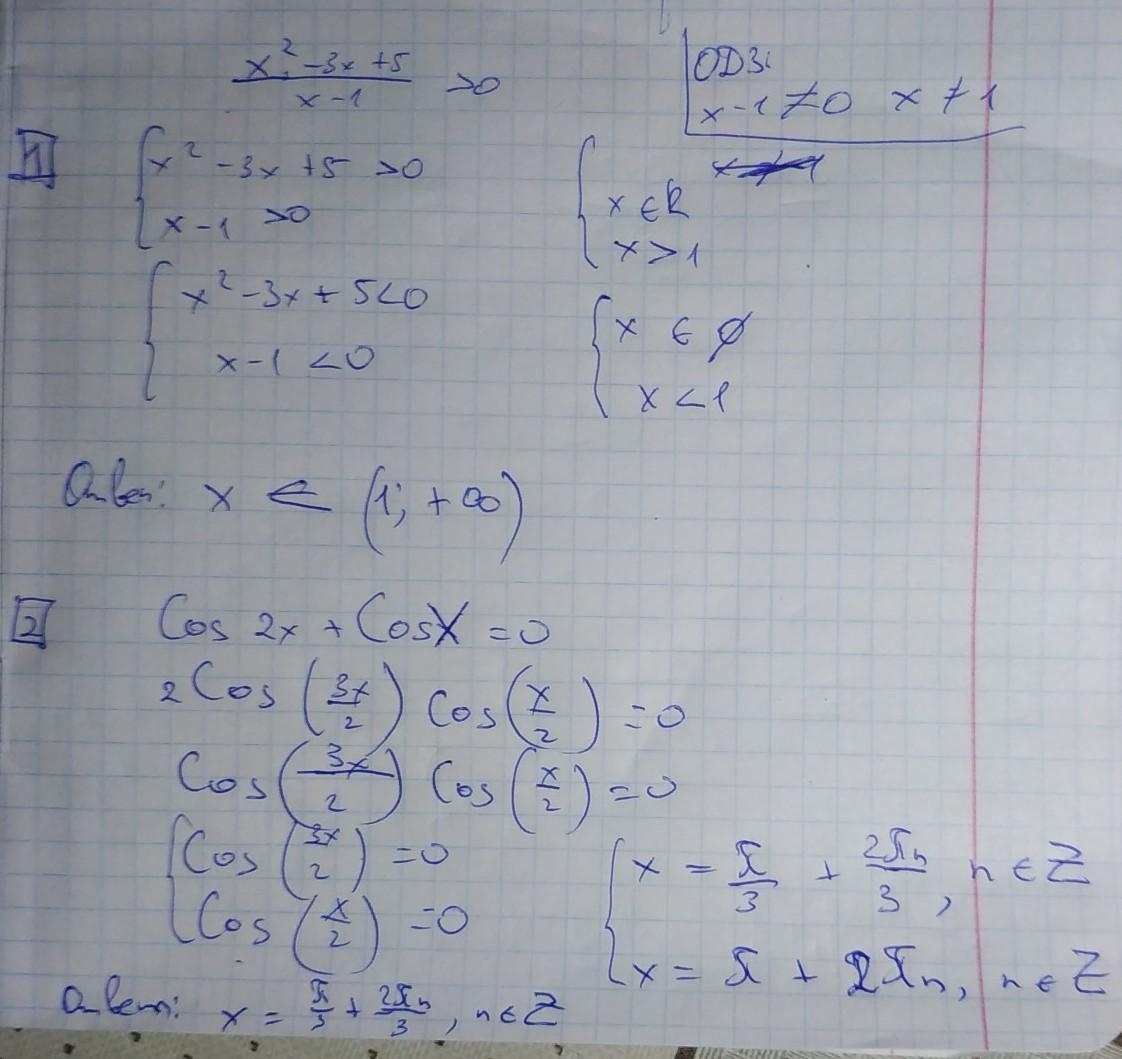 x² -3x +5 / x -1 >0
ОДЗ:
x -1 ≠0 x ≠ 1
1
{ x² -3x +5 >0
x -1 >0
{ x ∈ R
x > 1
{ x² -3x + 5<0
x -1 <0
{ x ∈ ∅
x < 1
Ответ: x ∈ (1; +∞)
2 Cos 2x + Cosx = 0
2 Cos (3x/2) Cos (x/2) = 0
Cos (3x/2) Cos (x/2) = 0
{ Cos (3x/2) =0
Cos (x/2) =0
{ x = π/3 + 2πn/3, n ∈ Z
x = π + 2πn, n ∈ Z
Ответ: x = π/3 + 2πn/3, n∈Z